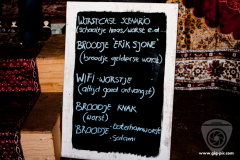 WORSTCASE SCENARIO
(schaaltje kaas/worst e.d...
BROODJE "ERIK SJONE"
(broodje gelderse worst)
WIFI WORSTJE
(altijd goed ontvangst)
BROODJE KNAK
(worst)
BROODJE Boterhamworst
Salami
www.gkppix.com